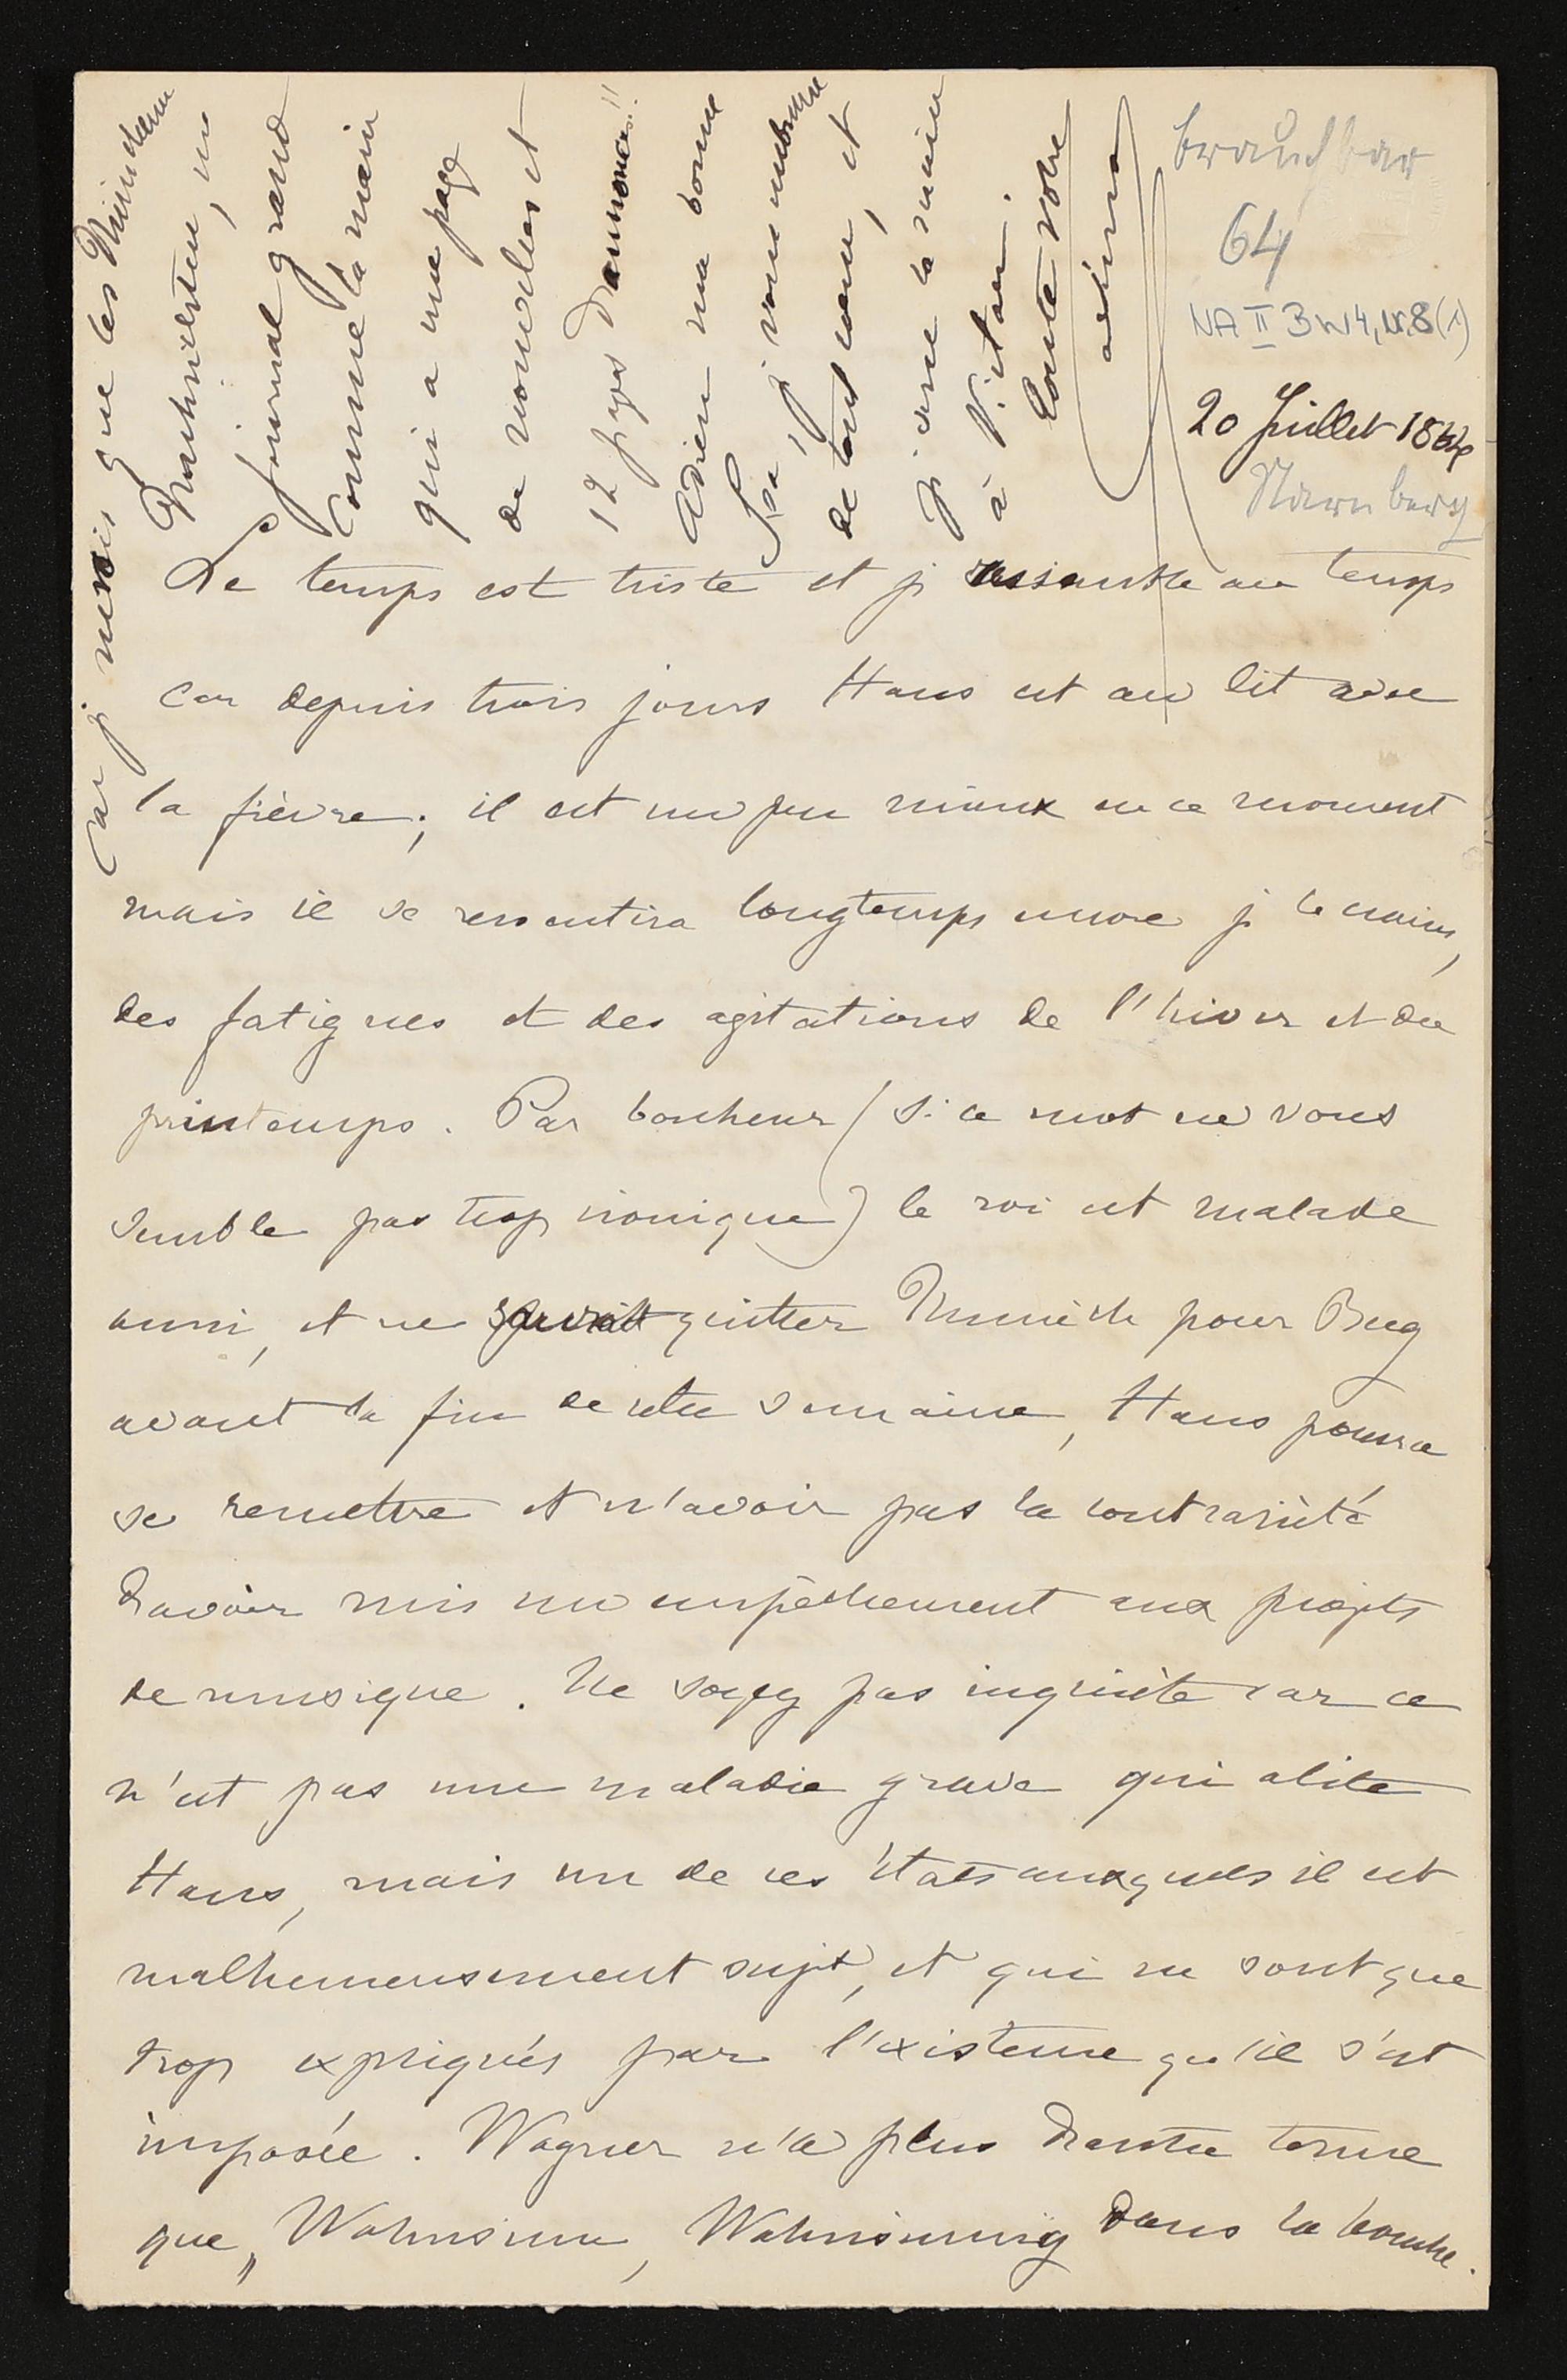 brauchbar
64
NA II B w 4, Nr. 8 (1)
20 Juillet 1864
Starnberg
Le temps est triste et je ressemble au temps
car depuis trois jours Hans est au lit avec
la fièvre; il est un peu mieux en ce moment
mais il se ressentira longtemps encore je le crains,
des fatigues et des agitations de l'hiver et du
printemps. Par bonheur (si ce mot ne vous
semble pas trop ironique) le roi est malade
aussi, et ne quitter Munich pour Berg
avant la fin de cette semaine, Hans pourra
se remettre et n'avoir pas la contrariété
d'avoir mis un empêchement aux projets
de musique. Ne soyez pas inquiète car ce
n'est pas une maladie grave qui alite
Hans, mais un de ces états auxquels il est
malheureusement sujet, et qui ne sont que
trop expliqués par l'existence qu'il s'est
imposée. Wagner n'a plus d'autre terme
que „Wahnsinn, Wahnsinnig dans la bouche.
car je n'avais que les
Nachrichten, un
journal grand
comme la main
qui a une page
de nouvelles et
12 pages d'annonces!!
Adieu ma bonne
je vous embrasse
de tout cœur, et
je serre la main
à
Toute votre